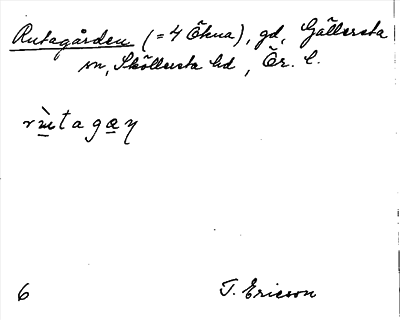 Rutagården (= 4 Ökna), gd, Gällersta
sn, Sköllersta hd, Ör. l.
rɯ̀tagaɲ
6 T. Ericson